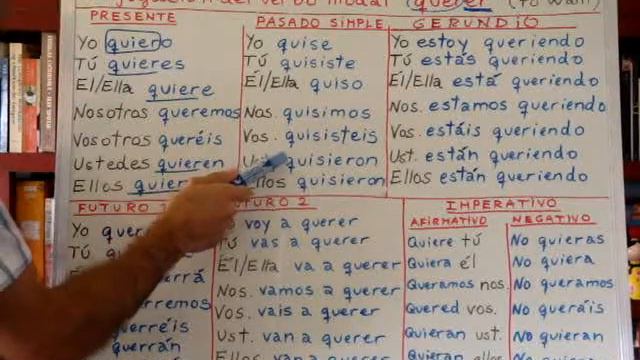 del verbo modal (querer (to want)
PRESENTE
Yo quiero
Tú quieres
Él/Ella quiere
Nosotros queremos
Vosotros queréis
Ustedes quieren
Ellos
PASADO SIMPLE
Yo quise
Tú quisiste
Él/Ella quiso
Nos. quisimos
Vos. quisisteis
quisieron
Ellos quisieron
GERUNDIO
Yo estoy queriendo
Tú estás queriendo
Él/Ella está queriendo
Nos. estamos queriendo
Vos. estáis queriendo
Ust. están queriendo
Ellos están queriendo
FUTURO 1
Yo
Tú
FUTURO 2
voy a querer
Tú vas a querer
Él/Ella va a querer
Nos. vamos a querer
Vos. vais a querer
Ust. van a querer
Ellos van a querer
IMPERATIVO
AFIRMATIVO
Quiere tú
Quiera él
Queramos nos.
Quered vos.
Quieran ust.
Quieran ellos
NEGATIVO
No quieras
No quiera
No queramos
No queráis
No quieran